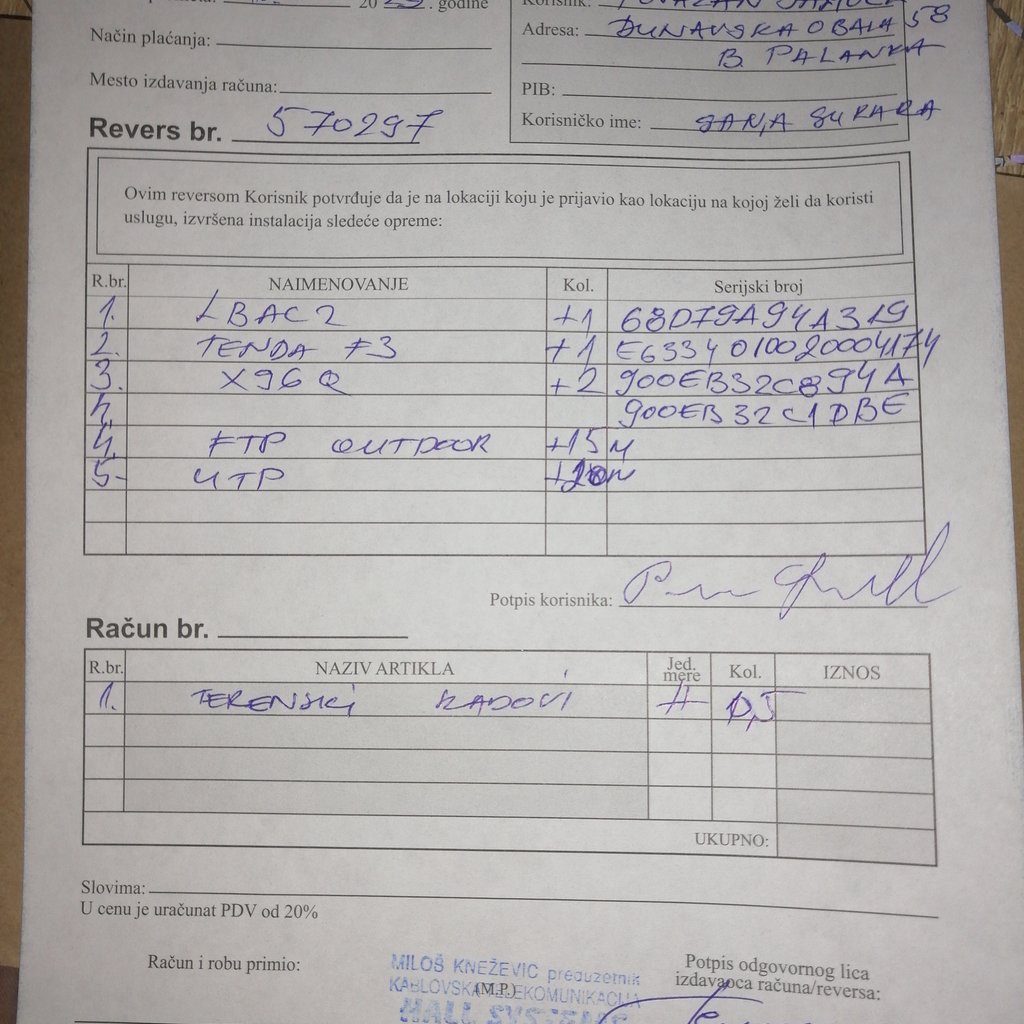 20 . godine
Korisnik:
Adresa: DUNAVSKA OBALA 58
B. PALANKA
Način plaćanja:
Mesto izdavanja računa:
PIB:
Korisničko ime:
Revers br. 570297
Ovim reversom Korisnik potvrđuje da je na lokaciji koju je prijavio kao lokaciju na kojoj želi da koristi
uslugu, izvršena instalacija sledeće opreme:
R.br. NAIMENOVANJE Kol. Serijski broj
1. LBAC2 +1 68D79A94A319
2. TENDA F3 +1 E6334010020004174
3. X96Q +2 900EB32C894A
4. 900EB32C1DBE
4. FTP OUTDOOR +15M
5- UTP +20M
Potpis korisnika:
Račun br.
R.br. NAZIV ARTIKLA Jed. mere Kol. IZNOS
1. TERENSKI RADOVI H 0,5
UKUPNO:
Slovima:
U cenu je uračunat PDV od 20%
Račun i robu primio:
MILOŠ KNEŽEVIC preduzetnik
KABLOVSKA TELEKOMUNIKACIJA
(M.P.)
HALL SYSTEMS
Potpis odgovornog lica
izdavaoca računa/reversa: